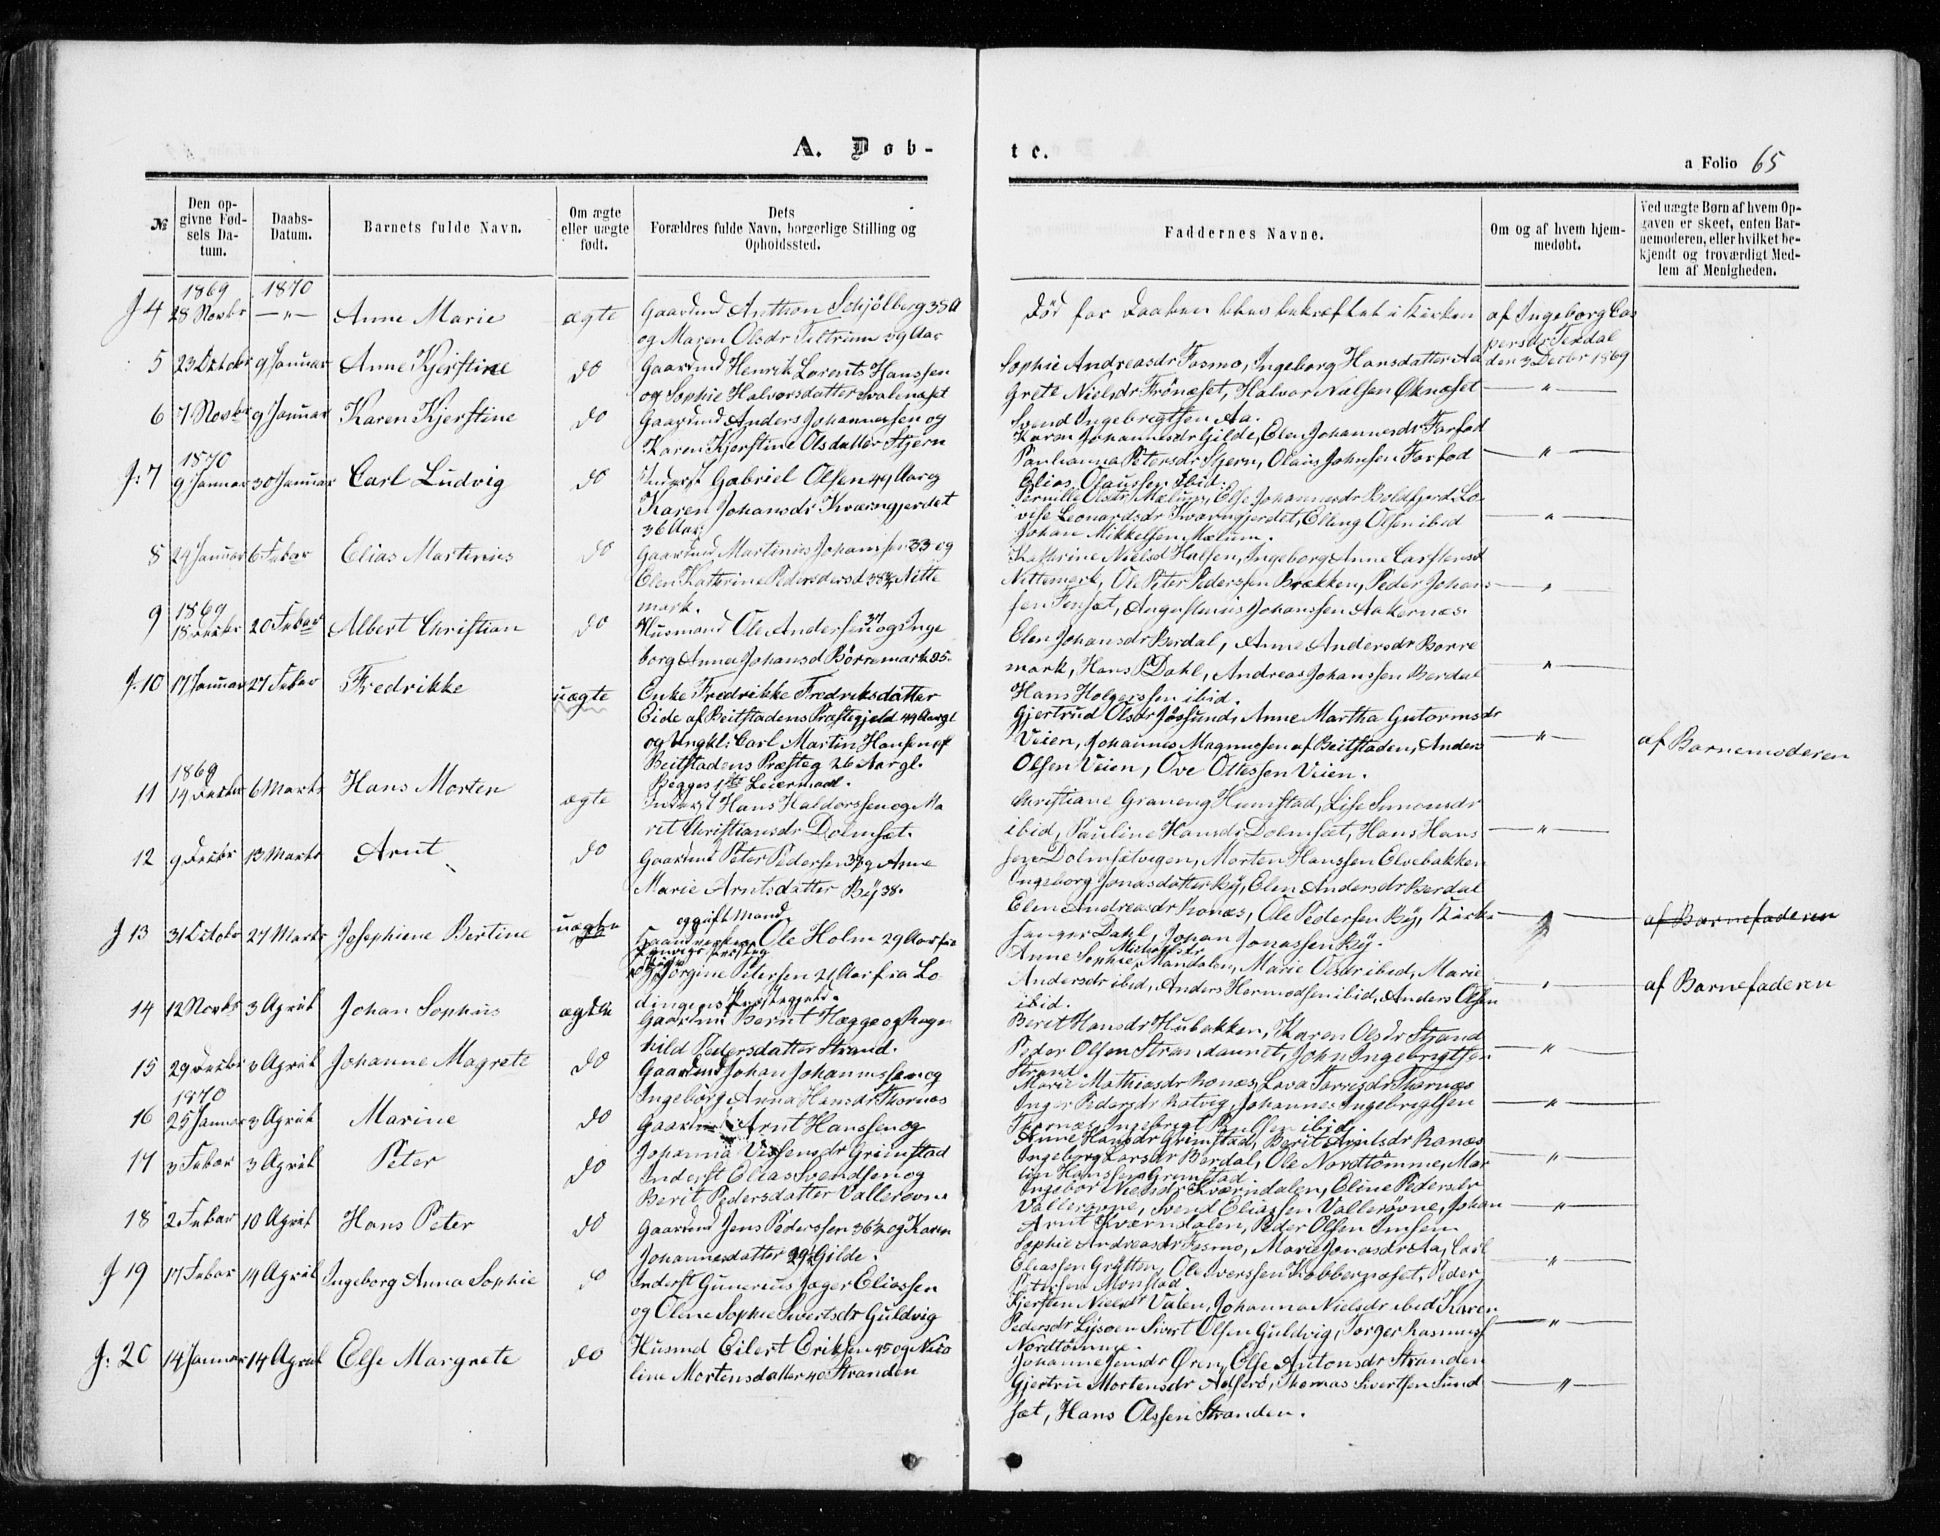 A. Døb-
te.
a Folio 65
№
Den opgivne Fødsels Datum.
Daabs-Datum.
Barnets fulde Navn.
Om ægte eller uægte født.
Dets Forældres fulde Navn, borgerlige Stilling og Opholdssted.
Faddernes Navne.
Om og af hvem hjemmedøbt.
Ved uægte Børn af hvem Opgaven er skeet, enten Barnemoderen, eller hvilket bekjendt og troværdigt Medlem af Menigheden.
1869 1870
J 4 28 Novbr —"— Anne Marie ægte Gaardmd Anthon Schjølberg 38 A
og Maren Olsdr Teltrum 39 Aar
Død før Daaben blev bekræftet i Kirken
af Ingeborg Cas
persdr Teddal
den 3 Decbr 1869
5 23 Octobr 9 Januar Anne Kjerstine do Gaardmd Henrik Lorents Hanssen
og Sophie Halvorsdatter Svalenæset
Sophie Andreasdr Fosmo, Ingeborg Hansdatter Aa
Grete Nielsdr Frönæset, Halvor Nilsen Øknæset —"—
Svend Ingebrigtsen Aa.
6 7 Novbr 9 Januar Karen Kjerstine do Gaardmd Anders Johannessen og
Karen Kjerstine Olsdatter Stjern
Karen Johannesdr Gilde, Elen Johannesdr Forfod
Paulianna Petersdr Stjern, Olaus Johnsen Forfod —"—
Elias Olaussen ibid.
1870
J: 7 9 Januar 30 Januar Carl Ludvig do Inderst Gabriel Olsen 49 Aar og
Karen Johansdr Kværngjerdet
36 Aar
Pernille Olsdr Mælum, Else Johannesdr Boldfjord Lo-
vise Leonardsdr Kværngjerdet, Elling Olsen ibid —"—
Johan Mikkelsen Mælum.
8 24 Januar 6 Febar Elias Martinius do Gaardmd Martinius Johanssen 33 og
Elen Katerine Pedersdersd 38½ Nitte
mark.
Kathrine Nielsd Halsen, Ingeborg Anne Carstensd
Nittemark, Ole Peter Pederssen Brækken, Peder Johans- —"—
sen Fenset, Angerstenius Johanssen Aakernæs.
1869
9 18 Decbr 20 Febar Albert Christian do Husmand Ole Andersen 37 og Inge
borg Anna Johansd Börremark 35.
Elen Johansdr Berdal, Anne Andersdr Borre
mark, Hans P Dahl, Andreas Johanssen Berdal —"—
Hans Holgerssen ibid.
J. 10 17 Januar 27 Febar Fredrikke uægte Enke Fredrikke Fredriksdatter
Eide af Beitstadens Præstegjeld 49 Aar gl
og Ungkl: Carl Martin Hansen af
Beitstadens Præsteg 26 Aar gl.
Begges 1ste Leiermaal.
Gjertrud Olsdr Jøssund, Anne Martha Gutormsdr
Veien, Johannes Magnussen af Beitstaden, Anders —"— af Barnemoderen
Olsen Veien, Ove Ottessen Veien.
1869
11 14 Decbr 6 Marts Hans Morten ægte Inderst Hans Haldorssen og Ma
rit Christiansdr Dolmsæt.
Christiane Graneng Humstad, Lise Simonsdr
ibid, Pauline Hansdr Dolmsæt, Hans Hans —"—
sen Dolmsætvigen, Morten Hanssen Elvebakken
12 9 Decbr 13 Marts Arnt do Gaardmd Peter Pedersen 37 og Anne
Marie Arntsdatter By 38.
Ingeborg Jonasdatter By, Elen Andersdr Berdal
Elen Andreasdr Ronæs, Ole Pedersen By, Kirke
sanger Dahl, Johan Jonassen By. af Barnefaderen
J 13 31 Octobr 27 Marts Josephine Bertine uægte og gift Mand
Haandverker Ole Holm 29 Aar fra
Jörgine Petersen 21 Aar fra Lo-
dingens Præstegjeld.
Anne Sophie Mandalen, Marie Olsdr ibid, Marie
Andersdr ibid, Anders Hermodsen ibid, Anders Olsen —"— af Barnefaderen
ibid.
14 12 Novbr 3 April Johan Sophus ægte Gaardmd Bernt Hægge og Ragn
hild Pedersdatter Strand.
Berit Hansdr Hubakken, Karen Olsdr Strand
Peder Olsen Strandaunet, John Ingebrigtsen —"—
Strand.
15 29 Decbr 3 April Johanne Magrete do Gaardmd Johan Johanssen og
Ingeborg Anna Hansdr Thornæs
Marie Mathiasdr Ronæs, Lova Tarrisdr Thornæs
Inger Pedersdr Ratvig, Johannes Ingebrigtsen —"—
Thornæs, Ingebrigt Paulsen ibid.
1870
16 25 Januar 3 April Marine do Gaardmd Arnt Hanssen og
Johanna Ursensdr Grimstad
Anne Hansdr Grimstad, Berit Arntsdr Ronæs
Ingeborg Larsdr Berdal, Ole Nordtömme, Mar —"—
tin Hanssen Grimstad
17 3 Febar 3 April Peter do Inderst Elias Svendsen og
Berit Pedersdatter Vallersvne
Ingebor Nielsdr Kværndalen, Eline Pedersdr
Vallersøvne, Svend Eliassen Vallersøvne, Johan —"—
Arnt Kværndalen, Peder Olsen Imsen
18 2 Febar 10 April Hans Peter do Gaardmd Jens Pederssen 36½ og Karen
Johannesdatter 29½ Gilde.
Sophie Andreasdr Fosmo, Marie Jonasdr Aa, Carl
Eliassen Gröttem, Ole Iverssen Kobbernæset, Peder —"—
Petersen Monstad.
J 19 17 Febar 14 April Ingeborg Anna Sophie do Inderst Gunerius Jæger Eliassen
og Olene Sophie Sivertsdr Guldvig
Kjersten Nielsdr Valen, Johanna Nielsdr ibid Karen
Pedersdr Lysøen Sivert Olsen Guldvig, Torger Rasmuss —"—
Nordtömme.
J: 20 14 Januar 14 April Else Margrete do Husmd Eilert Eriksen 45 og Nico
line Mortensdatter 40 Stranden
Johanne Jensdr Ören, Else Antonsdr Stranden
Gjertru Mortensdr Adserö, Thomas Sivertsen Sund —"—
sæt, Hans Olssen Stranden.